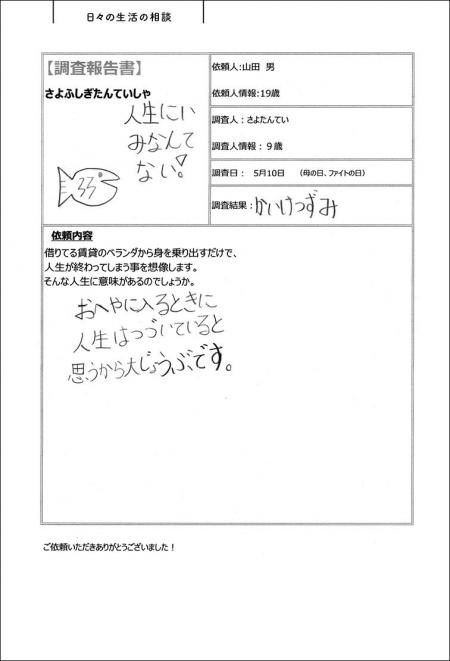 日々の生活の相談
【調査報告書】
さよふしぎたんていしゃ
人生にい
みなんて
ない!
33
依頼人:山田 男
依頼人情報:19歳
調査人:さよたんてい
調査人情報:9歳
調査日: 5月10日 (母の日、ファイトの日)
調査結果:かいけつずみ
依頼内容
借りてる賃貸のベランダから身を乗り出すだけで、
人生が終わってしまう事を想像します。
そんな人生に意味があるのでしょうか。
おへやに入るときに
人生はつづいていると
思うから大じょうぶです。
ご依頼いただきありがとうございました!